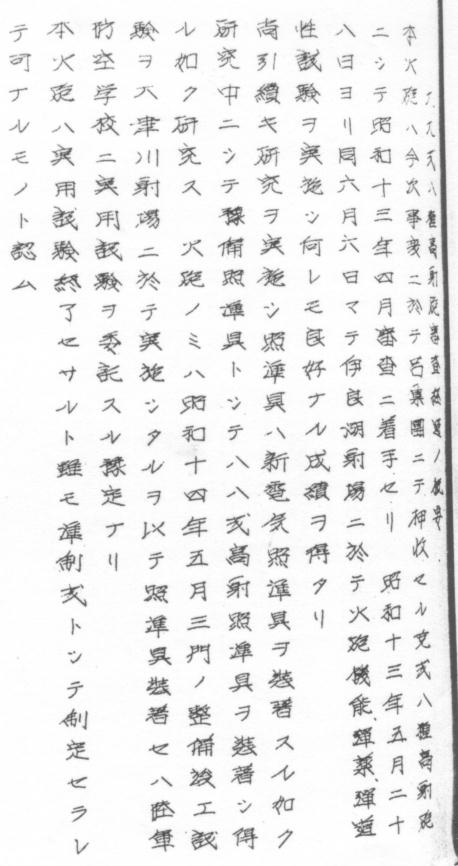 九九式八糎高射砲審査採用ノ概要
本火砲ハ今次事変ニ於テ呂集団ニテ押收セル克式八糎高射砲
ニシテ昭和十三年四月審査ニ着手セリ 昭和十三年五月二十
八日ヨリ同六月六日マテ伊良湖射場ニ於テ火砲機能、弾薬、弾道
性試験ヲ実施シ何レモ良好ナル成績ヲ得タリ
尚引續キ研究ヲ実施シ照準具ハ新電気照準具ヲ装着スル如ク
研究中ニシテ豫備照準具トシテハ八八式高射照準具ヲ装着シ得
ル如ク研究ス 火砲ノミハ昭和十四年五月三門ノ整備竣工試
験ヲ大津川射場ニ於テ実施シタルヲ以テ照準具装着セハ陸軍
防空学校ニ実用試験ヲ委託スル豫定ナリ
本火砲ハ実用試験終了セサルト雖モ準制式トシテ制定セラレ
テ可ナルモノト認ム